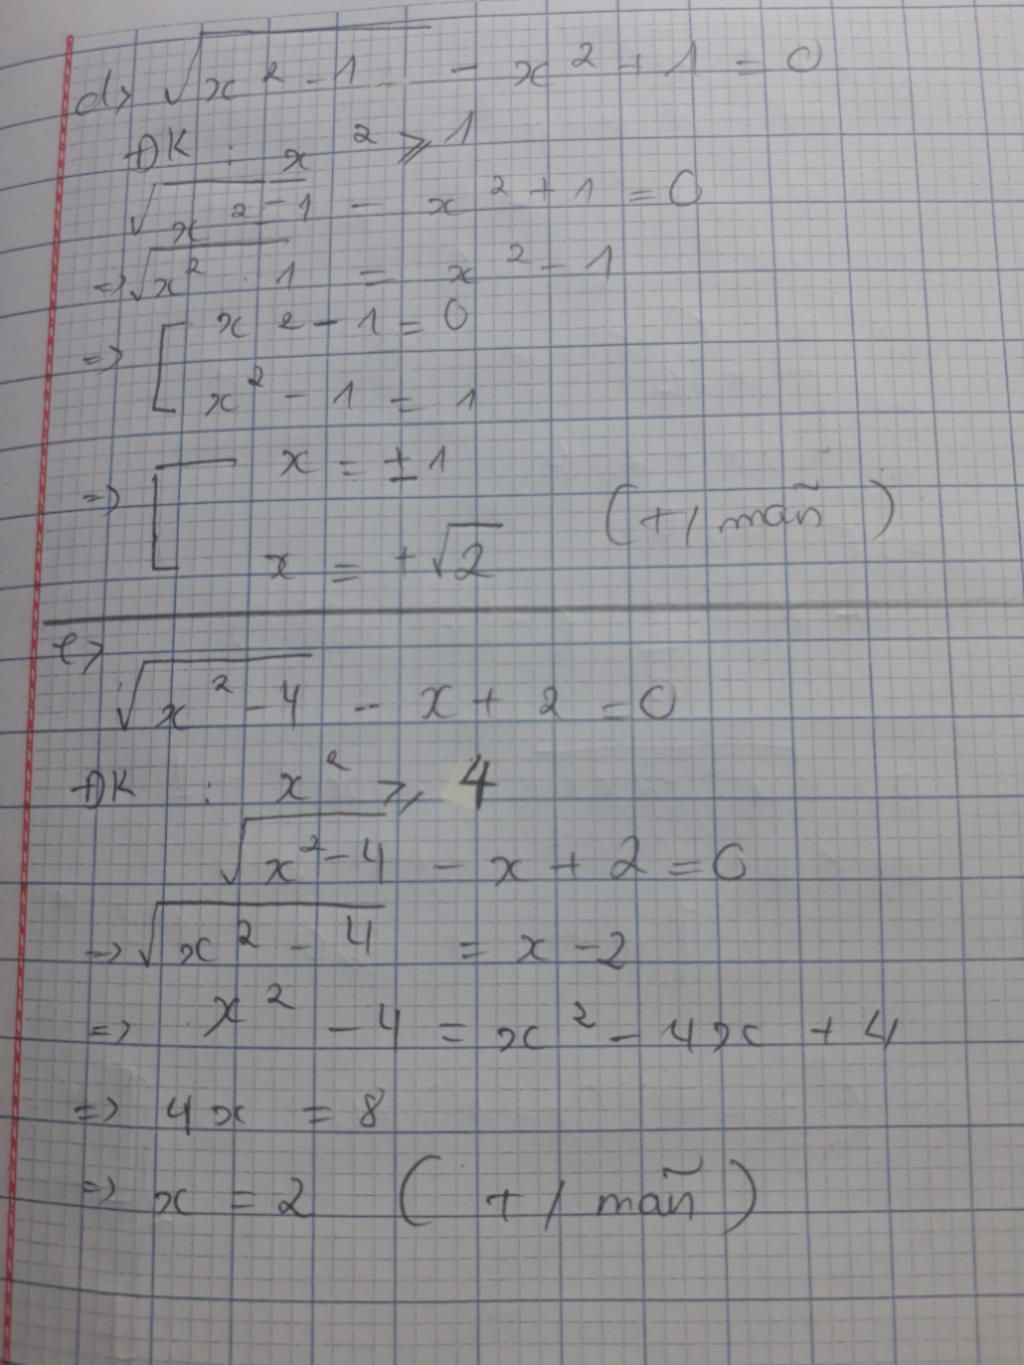 d> √(x² - 1) - x² + 1 = 0
ĐK : x² ≥ 1
√(x² - 1) - x² + 1 = 0
=> √(x² - 1) = x² - 1
=> [ x² - 1 = 0
x² - 1 = 1
=> [ x = ± 1
x = + √2 (t/mãn)
e>
√(x² - 4) - x + 2 = 0
ĐK : x² ≥ 4
√(x² - 4) - x + 2 = 0
=> √(x² - 4) = x - 2
=> x² - 4 = x² - 4x + 4
=> 4x = 8
=> x = 2 (t/mãn)